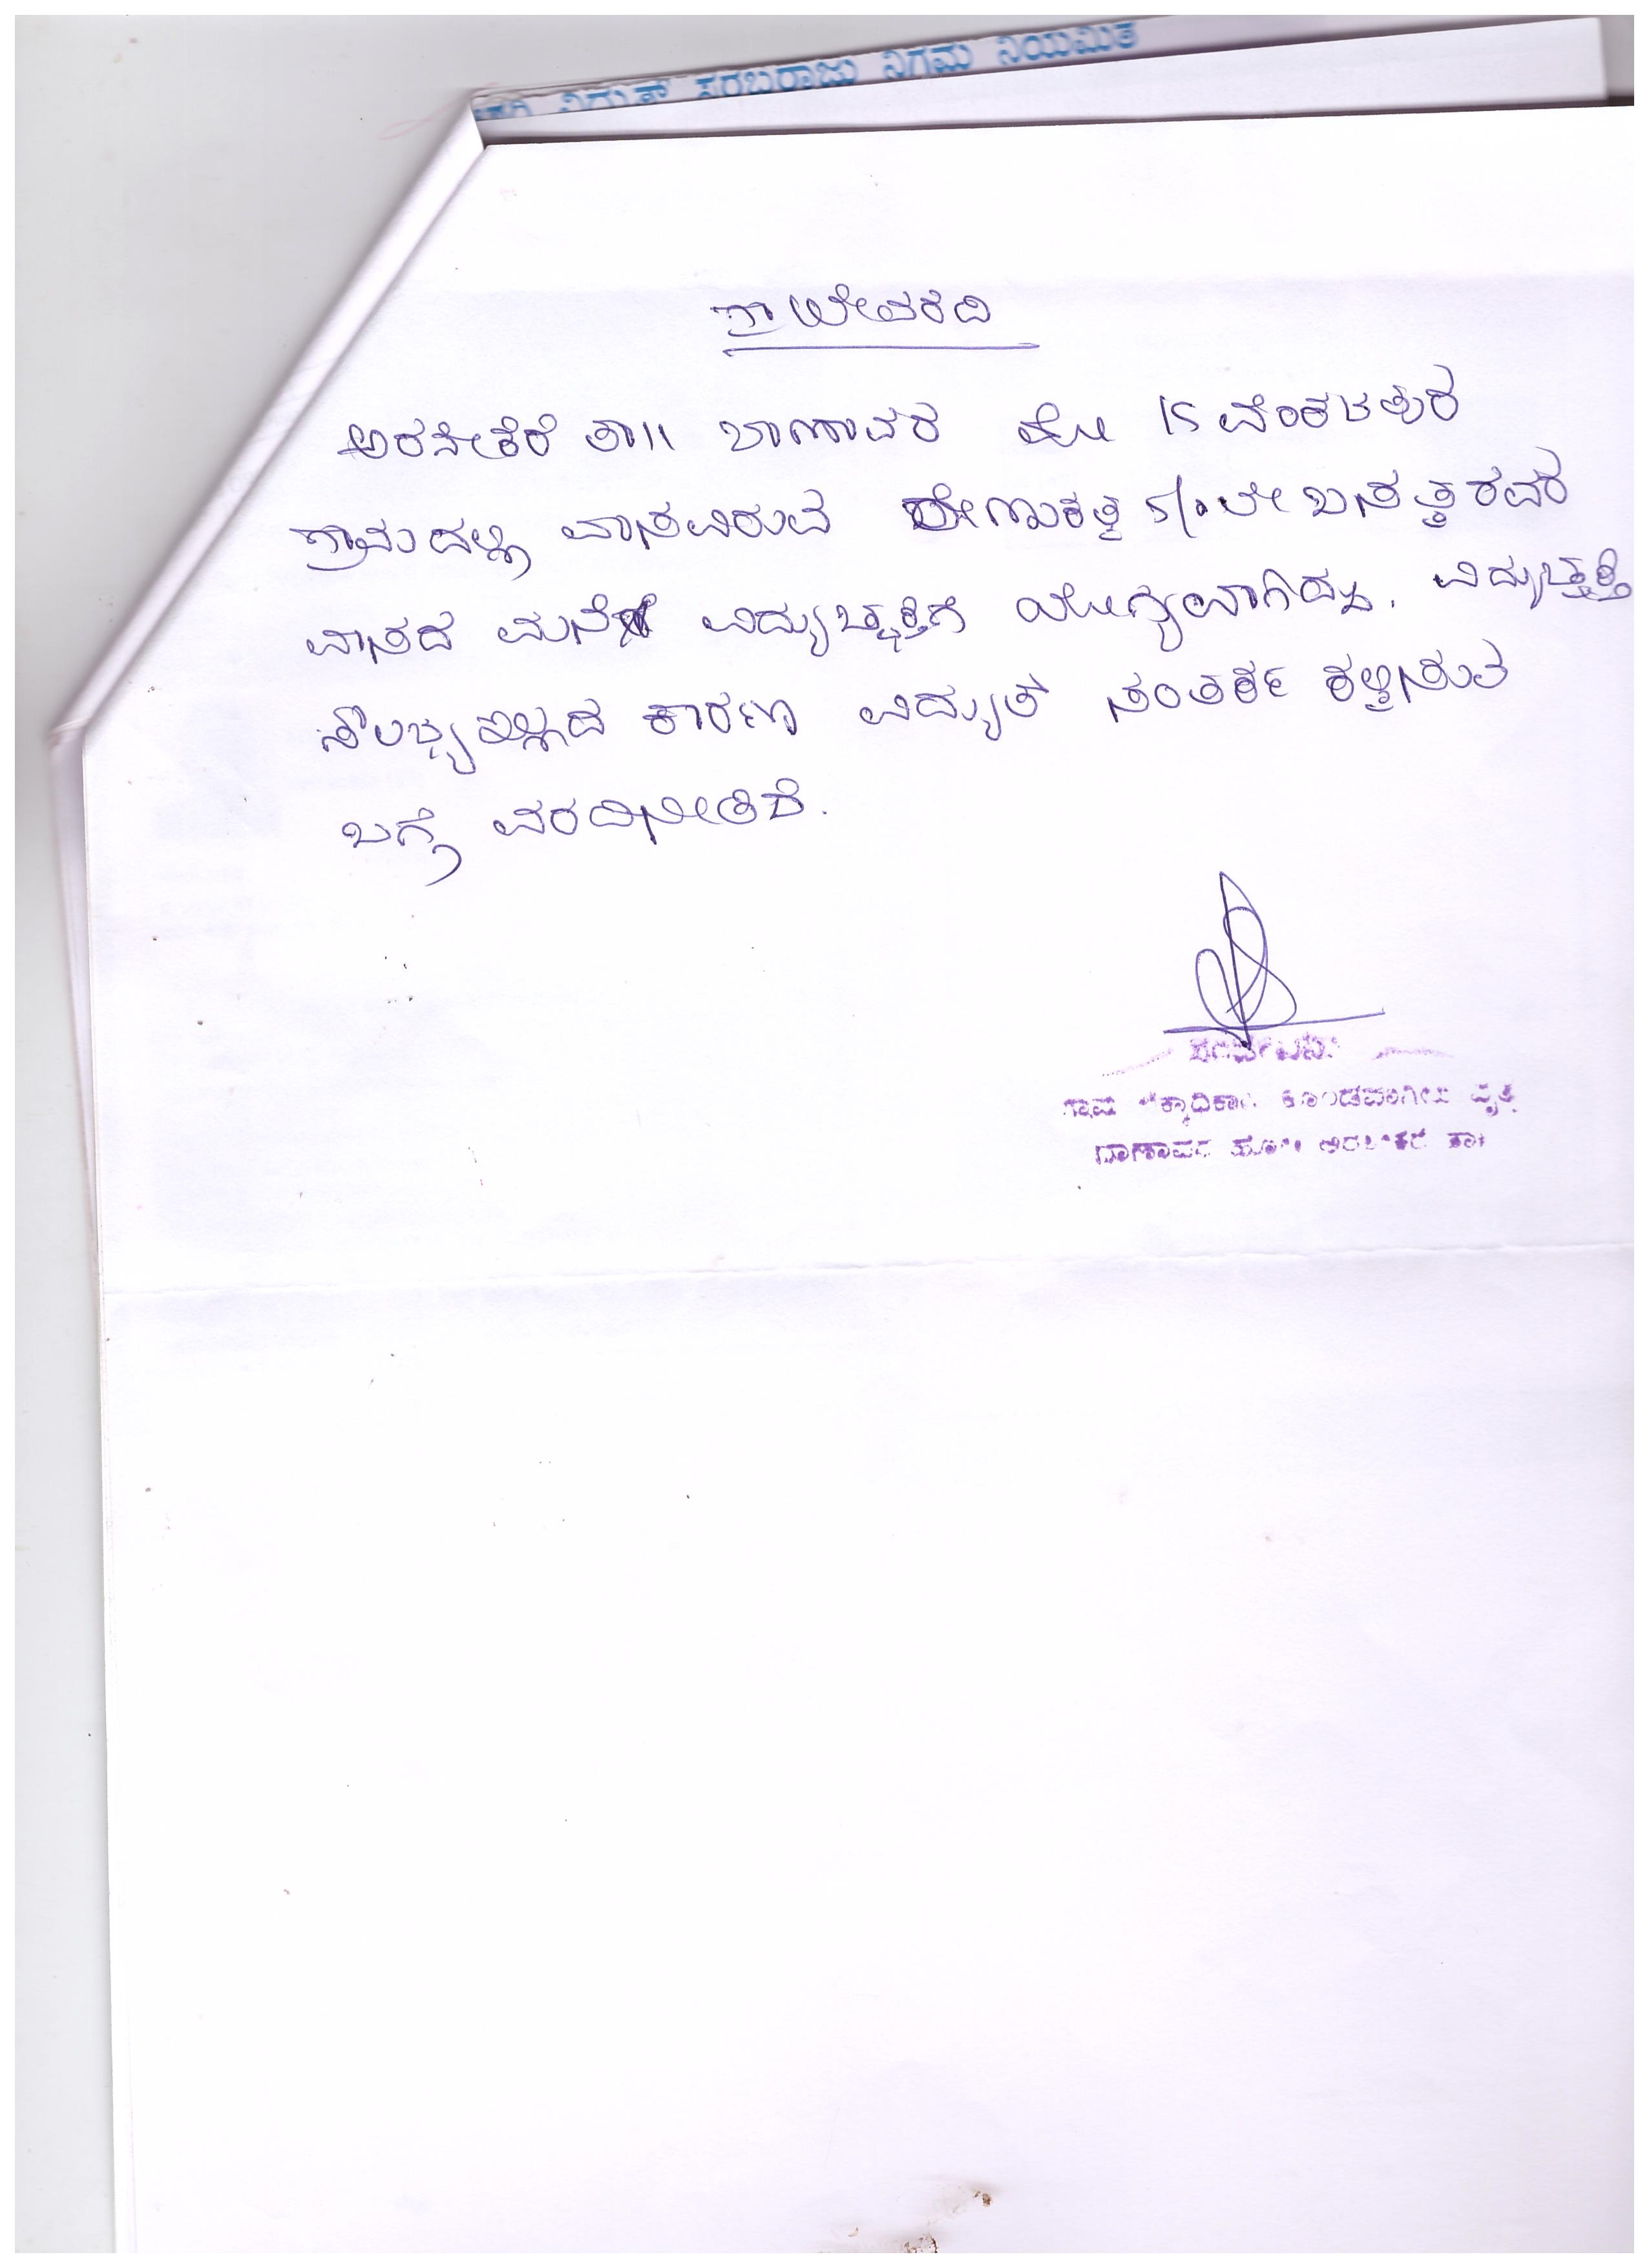 ವಿದ್ಯುತ್ ಸರಬರಾಜು ನಿಗಮ ನಿಯಮಿತ
ಗ್ರಾ ಲೇವರದಿ
ಅರಸೀಕೆರೆ ತಾ|| ಬಾಣಾವರ ಹೋ 15 ವೆಂಕಟಪುರ
ಗ್ರಾಮದಲ್ಲಿ ವಾಸವಿರುವ ರೇಣುಕಪ್ಪ S/o ಲೇ ಬಸಪ್ಪರವರ
ವಾಸದ ಮನೆಗೆ ವಿದ್ಯುಚ್ಛಕ್ತಿಗೆ ಯೋಗ್ಯವಾಗಿದ್ದು. ವಿದ್ಯುಚ್ಛಕ್ತಿ
ಸೌಲಭ್ಯಇಲ್ಲದ ಕಾರಣ ವಿದ್ಯುತ್ ಸಂಪರ್ಕ ಕಲ್ಪಿಸುವ
ಬಗ್ಗೆ ವರದಿನೀಡಿದೆ.
ಗ್ರಾಮ ಲೆಕ್ಕಾಧಿಕಾರಿ ವೃತ್ತ
ಬಾಣಾವರ ಹೋ|| ಅರಸೀಕೆರೆ ತಾ||